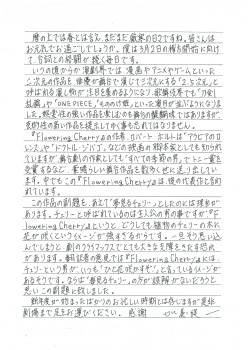 暦の上では春とは言え、まだまだ厳寒の日々ですね。皆さんは
お元気でお過ごしでしょうか。僕は3月2日の舞台初日に向け
て台詞との格闘が続く毎日です。
いつの頃からか演劇界では、漫画やアニメやゲームといった
二次元の作品を俳優が舞台で演じて三次元にする"2.5次元"と
呼ばれる演し物が、注目を集めるようになり、歌舞伎界でも『刀剣
乱舞』や『ONE PIECE』、『もののけ姫』といった演目が並ぶようになりま
した。娯楽性の強い作品を楽しむのも舞台の醍醐味ではありますが、
芸術性の高い作品を提示してゆく事も忘れてはなりません。
『Flowering Cherry』の作者 ロバート・ボルトは『アラビアのロ
レンス』や『ドクトル・ジバゴ』などの映画の脚本家としても知られ
ていますが、舞台劇の作家としても『すべての季節の男』でトニー賞を
受賞するなど、素晴らしい舞台作品を数多く世に送り出してい
ます。中でもこの『Flowering Cherry』は彼の代表作と言わ
れています。
この作品の題名を、あえて『夢見るチェリー』としたのには理由が
あります。チェリーと呼ばれているのは主人公の男の事ですが『F
lowering Cherry』というと、どうしても植物のチェリーの木に
花が咲くというイメージが強すぎるからです。一旦そう思い込
んでしまうと、劇のクライマックスでとても大きな支障をきたす恐れ
があります。翻訳者の意見では『Flowering Cherry』には、
チェリーという男が、いつも"ひと花咲かすぞ"、と言っているイメージが
あるそうです。ならば『夢見るチェリー』の方が誤解がないだろうと
思い この題名に致しました。
新年度が始まったばかりのお忙しい時期とは存じますが是非
劇場まで足をお運びください。 感謝